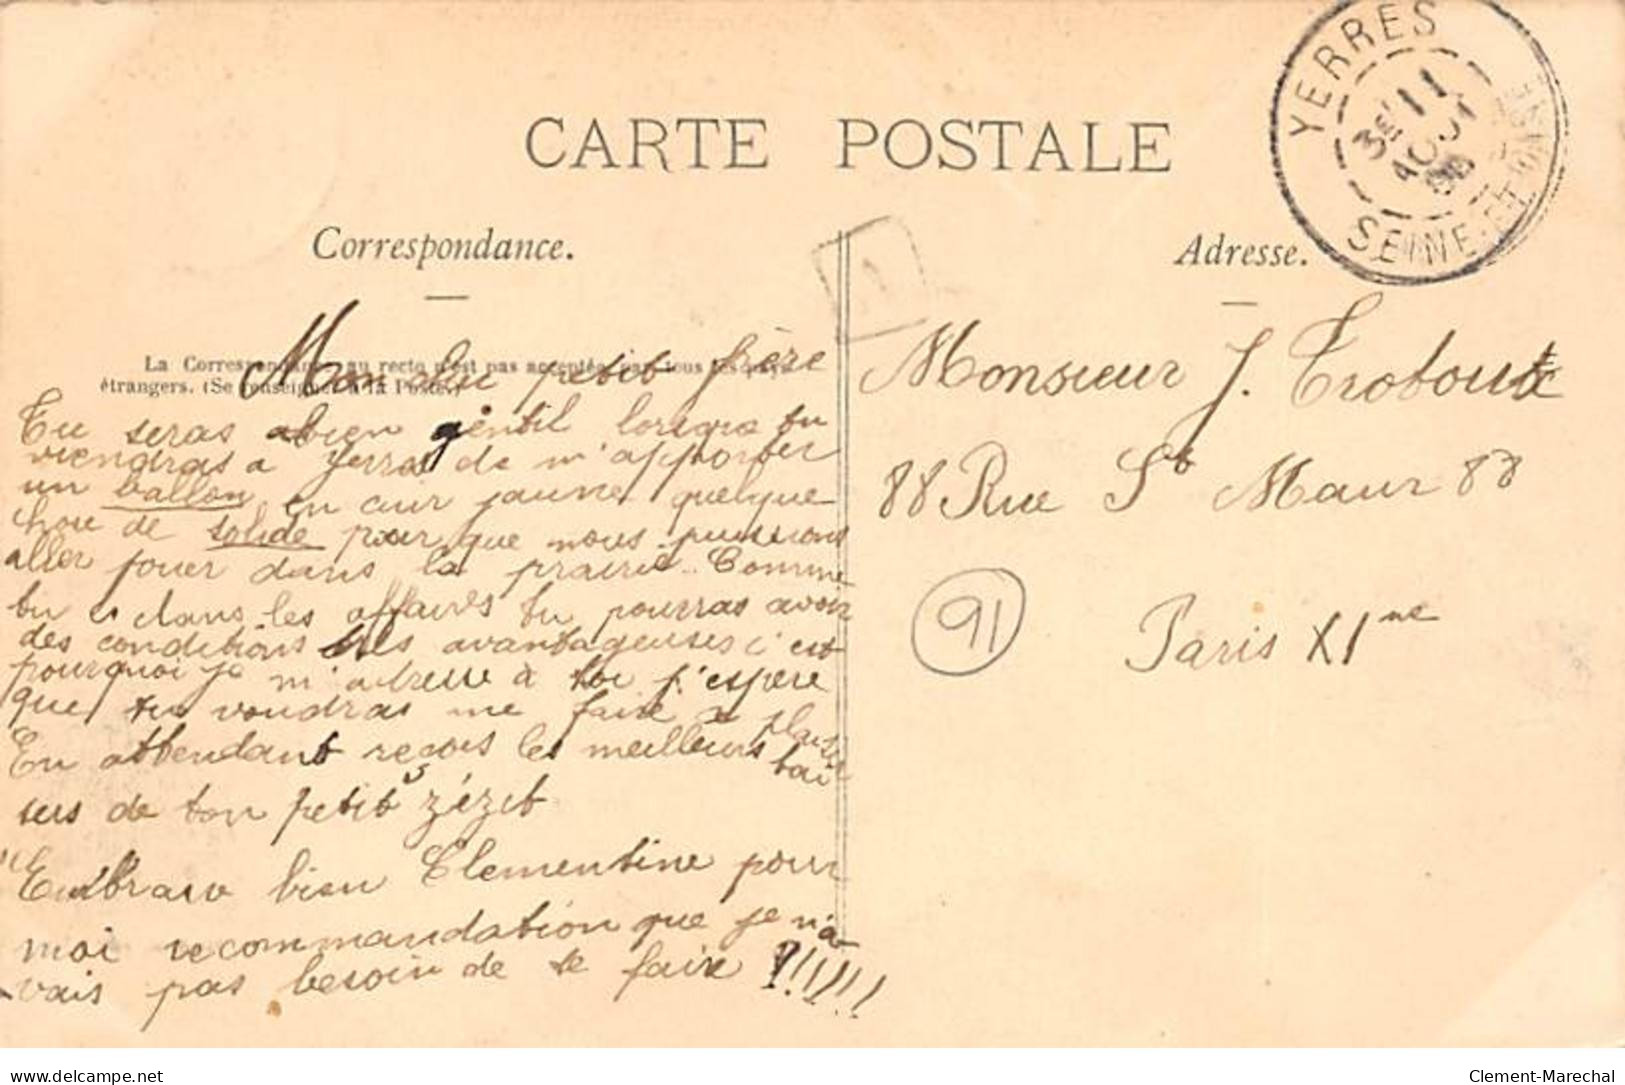 CARTE POSTALE
Correspondance.
Adresse.
La Correspondance au recto n'est pas acceptée par tous les pays
étrangers. (Se renseigner à la Poste.)
YERRES
3E 11
AOUT
SEINE-ET-OISE
1
Mon petit frère
Tu seras bien gentil lorsque tu
viendras a Yerres de m'apporter
un ballon en cuir jaune quelque
chose de solide pour que nous puissions
aller jouer dans la prairie. Comme
tu es dans les affaires tu pourras avoir
des conditions très avantageuses c'est
pourquoi je m'adresse à toi j'espère
que tu voudras me faire plaisir
En attendant reçois les meilleurs bai
sers de ton petit zézet
Embrasse bien Clementine pour
moi recommandation que je n'a
vais pas besoin de te faire !!!!!!
Monsieur J. Trotoux
88 Rue St Maur 88
Paris XIme
91
www.delcampe.net
Clement-Marechal